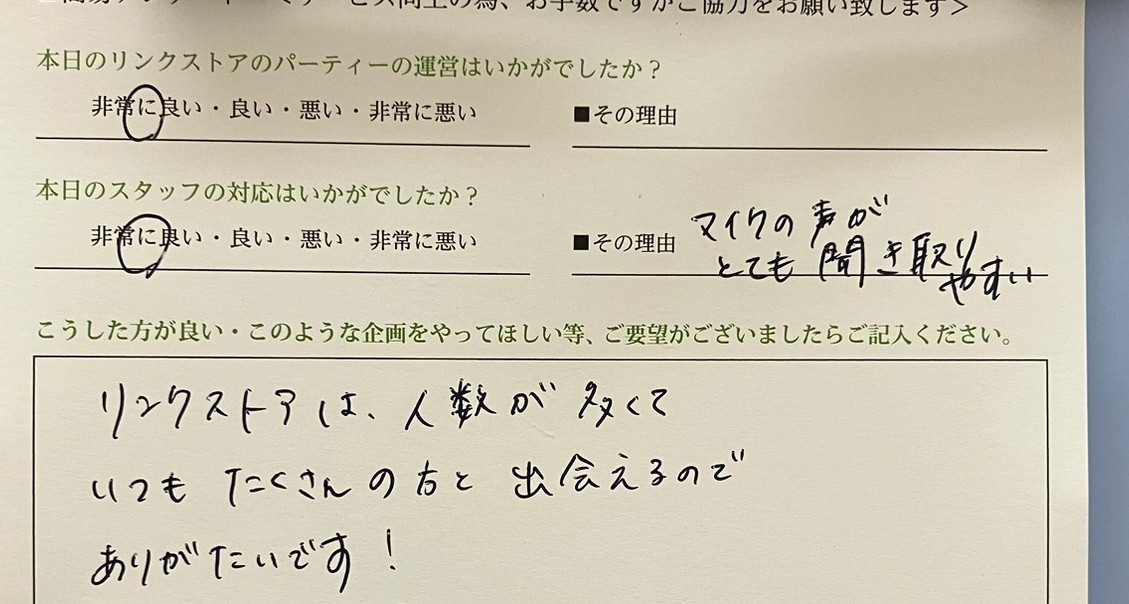 サービス向上の為、お手数ですがご協力をお願い致します＞
本日のリンクストアのパーティーの運営はいかがでしたか？
非常に良い・良い・悪い・非常に悪い　■その理由
本日のスタッフの対応はいかがでしたか？
非常に良い・良い・悪い・非常に悪い　■その理由　マイクの声が
とても聞き取り
やすい
こうした方が良い・このような企画をやってほしい等、ご要望がございましたらご記入ください。
リンクストアは、人数が多くて
いつもたくさんの方と出会えるので
ありがたいです！